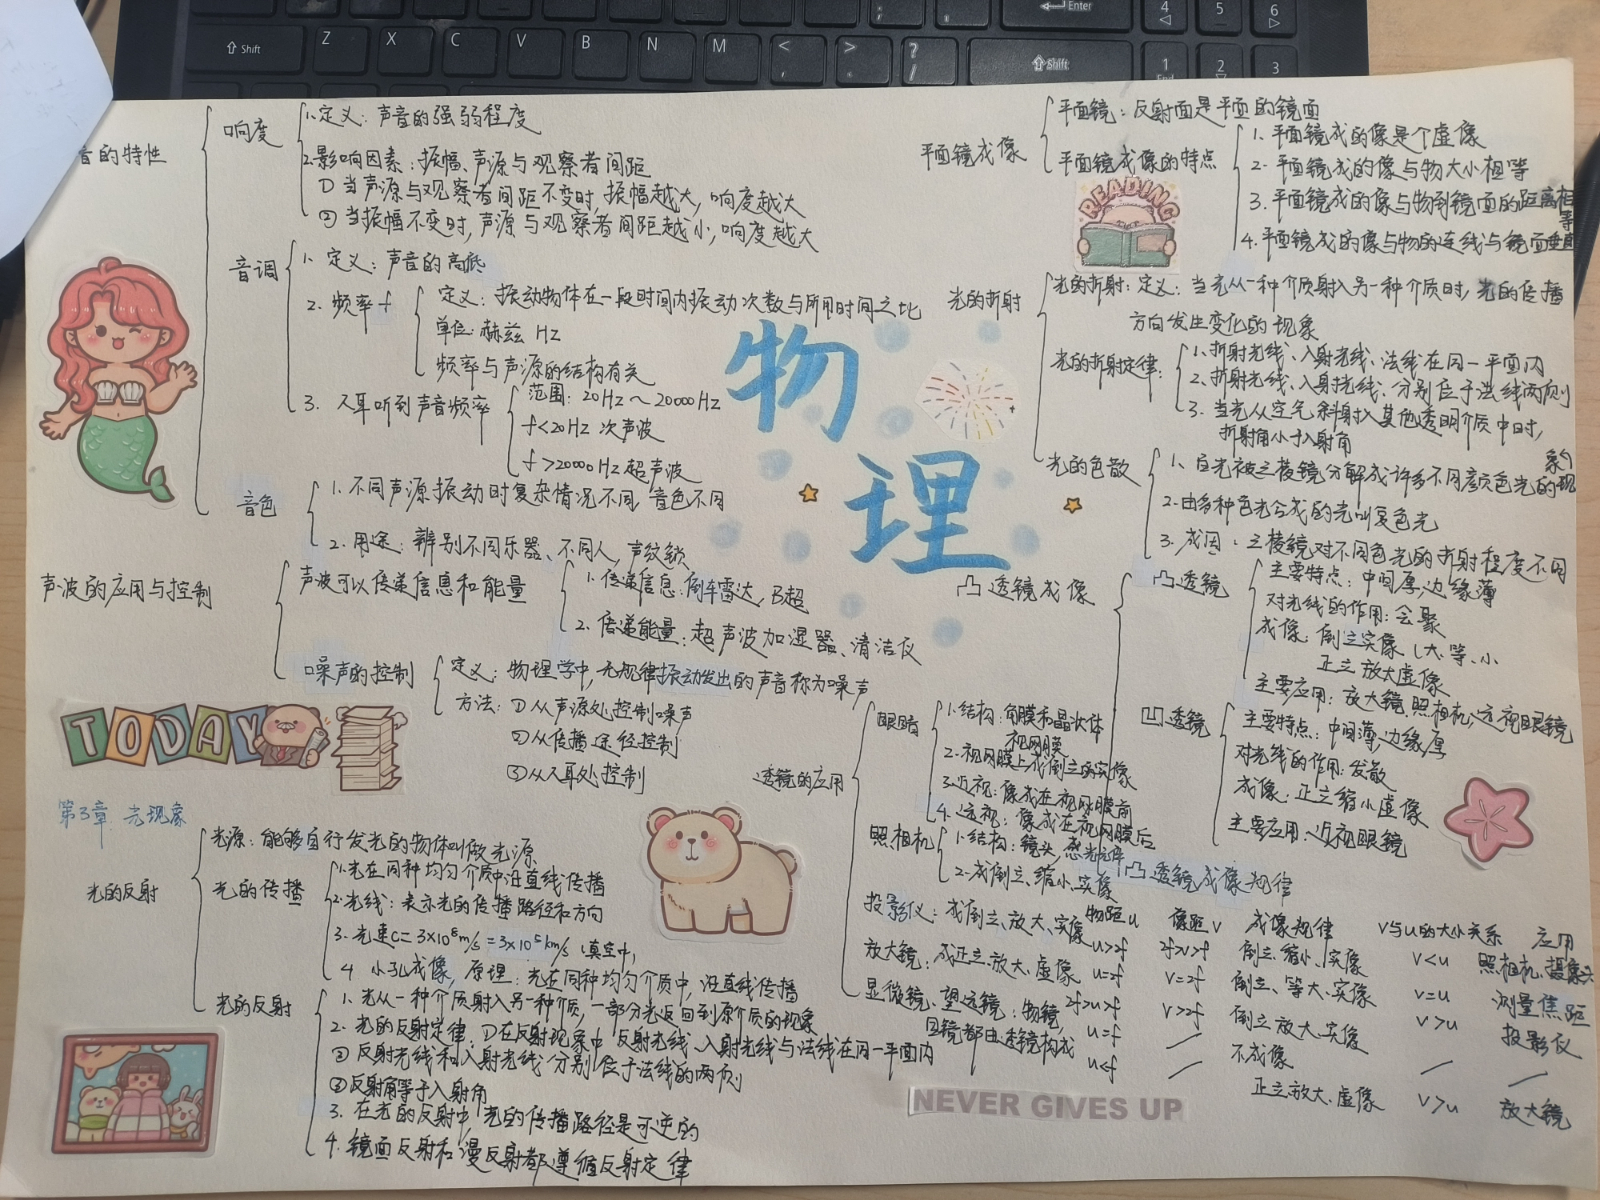 音的特性
响度
1.定义:声音的强弱程度
2.影响因素:振幅、声源与观察者间距
①当声源与观察者间距不变时,振幅越大,响度越大
②当振幅不变时,声源与观察者间距越小,响度越大
音调
1.定义:声音的高底
2.频率f
定义:振动物体在一段时间内振动次数与所用时间之比
单位:赫兹 HZ
频率与声源的结构有关
3.人耳听到声音频率
范围:20HZ~20000HZ
f<20HZ 次声波
f>20000HZ超声波
音色
1.不同声源振动时复杂情况不同,音色不同
2.用途:辨别不同乐器、不同人,声纹锁
声波的应用与控制
声波可以传递信息和能量
1.传递信息:倒车雷达,B超
2.传递能量:超声波加湿器、清洁仪
噪声的控制
定义:物理学中,无规律振动发出的声音称为噪声
方法:①从声源处控制噪声
②从传播途径控制
③从人耳处控制
TODAY
第3章 光现象
光的反射
光源:能够自行发光的物体叫做光源
光的传播
1.光在同种均匀介质中沿直线传播
2.光线:表示光的传播路径和方向
3.光速c=3×10⁸m/s=3×10⁵km/s(真空中)
4.小孔成像,原理:光在同种均匀介质中,沿直线传播
光的反射
1.光从一种介质射入另一种介质,一部分光返回到原介质的现象
2.光的反射定律:①在反射现象中,反射光线、入射光线与法线在同一平面内
②反射光线和入射光线分别位于法线的两侧
③反射角等于入射角
3.在光的反射中,光的传播路径是可逆的
4.镜面反射和漫反射都遵循反射定律
物理
平面镜成像
平面镜:反射面是平面的镜面
平面镜成像的特点
1.平面镜成的像是个虚像
2.平面镜成的像与物大小相等
3.平面镜成的像与物到镜面的距离相等
4.平面镜成的像与物的连线与镜面垂直
READING
光的折射
光的折射:定义:当光从一种介质射入另一种介质时,光的传播
方向发生变化的现象
光的折射定律:
1.折射光线、入射光线、法线在同一平面内
2.折射光线、入射光线、分别位于法线两侧
3.当光从空气斜射入其他透明介质中时,
折射角小于入射角
光的色散
1.白光被三棱镜分解成许多不同颜色光的现象
2.由多种色光合成的光叫复色光
3.成因:三棱镜对不同色光的折射程度不同
凸透镜成像
凸透镜
主要特点:中间厚,边缘薄
对光线的作用:会聚
成像:倒立实像(大、等、小
正立放大虚像
主要应用:放大镜、照相机、远视眼镜
凹透镜
主要特点:中间薄,边缘厚
对光线的作用:发散
成像:正立缩小虚像
主要应用:近视眼镜
透镜的应用
眼睛
1.结构:角膜和晶状体
视网膜
2.视网膜上成倒立的实像
3.近视:像成在视网膜前
4.远视:像成在视网膜后
照相机
1.结构:镜头,感光元件
2.成倒立、缩小、实像
投影仪:成倒立、放大、实像
放大镜:成正立、放大、虚像
显微镜、望远镜:物镜,
目镜都由透镜构成
凸透镜成像规律
物距u 像距v 成像规律 v与u的大小关系 应用
u>2f 2f>v>f 倒立、缩小、实像 v<u 照相机、摄像头
u=2f v=2f 倒立、等大、实像 v=u 测量焦距
2f>u>f v>2f 倒立放大、实像 v>u 投影仪
u=f / 不成像 / /
u<f / 正立、放大、虚像 v>u 放大镜
NEVER GIVES UP